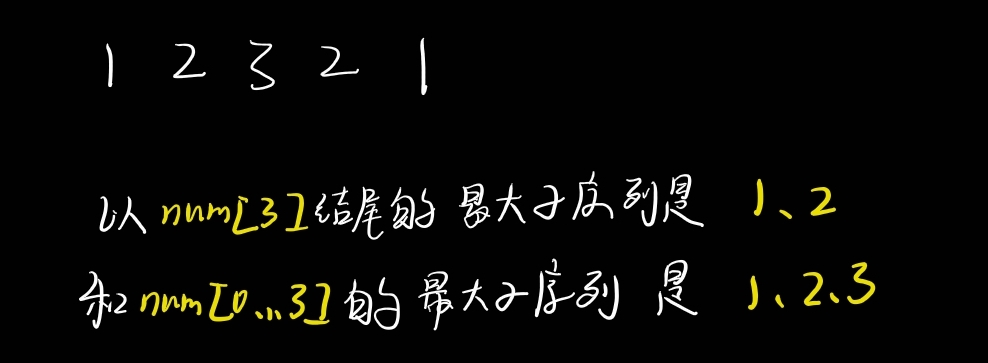 1 2 3 2 1
以 num[3]结尾的 最大子序列是 1、2
和 num[0...3]的 最大子序列 是 1、2、3